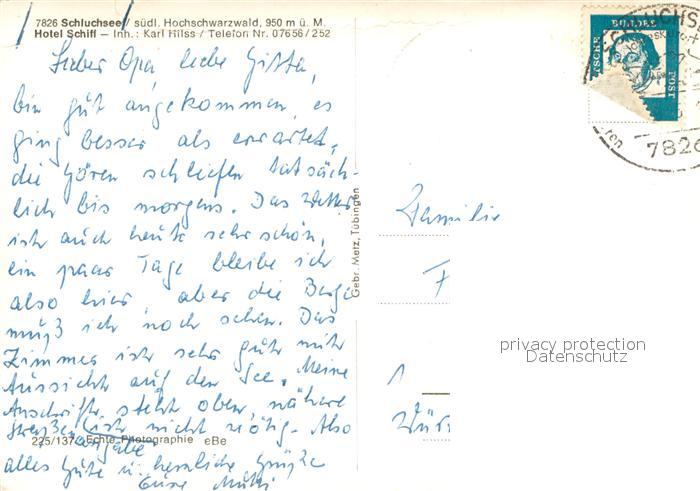 7826 Schluchsee / südl. Hochschwarzwald, 950 m ü. M.
Hotel Schiff – Inh.: Karl Hilss / Telefon Nr. 07656/252
Lieber Opa, liebe Gitta,
bin gut angekommen, es
ging besser als erwartet,
die Gören schliefen tatsäch-
lich bis morgens. Das Wetter
ist auch heute sehr schön,
ein paar Tage bleibe ich
also hier, aber die Berge
muß ich noch sehen. Das
Zimmer ist sehr gut mit
Aussicht auf den See. Meine
Anschrift steht oben, nähere
Straßenangabe ist nicht nötig. Also
225/137 Echte Photographie eBe
alles Gute u. herzliche Grüße
Eure Mutti
Gebr. Metz, Tübingen
Familie
F
1
Wür
DEUTSCHE BUNDESPOST
7826
privacy protection
Datenschutz